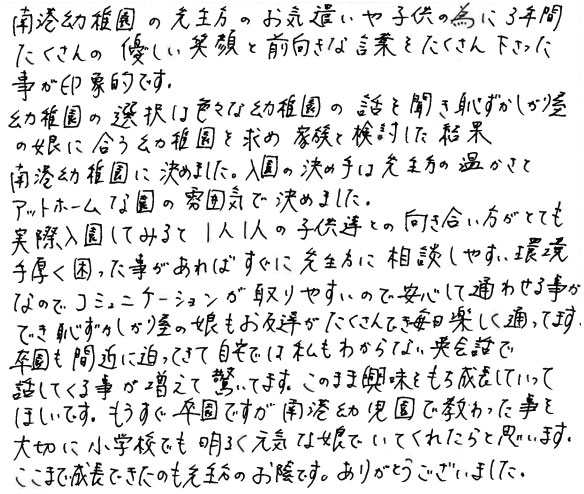 南港幼稚園の先生方のお気遣いや子供の為に3年間
たくさんの優しい笑顔と前向きな言葉をたくさん下さった
事が印象的です。
幼稚園の選択は色々な幼稚園の話を聞き恥ずかしがり屋
の娘に合う幼稚園を求め家族と検討した結果
南港幼稚園に決めました。入園の決め手は先生方の温かさと
アットホームな園の雰囲気で決めました。
実際入園してみると1人1人の子供達との向き合い方がとても
手厚く困った事があればすぐに先生方に相談しやすい環境
なのでコミュニケーションが取りやすいので安心して通わせる事が
でき恥ずかしがり屋の娘もお友達がたくさんでき毎日楽しく通ってます。
卒園も間近に迫ってきて自宅では私もわからない英会話で
話してくる事が増えて驚いてます。このまま興味をもち成長していって
ほしいです。もうすぐ卒園ですが南港幼児園で教わった事を
大切に小学校でも明るく元気な娘でいてくれたらと思います。
ここまで成長できたのも先生方のお陰です。ありがとうございました。